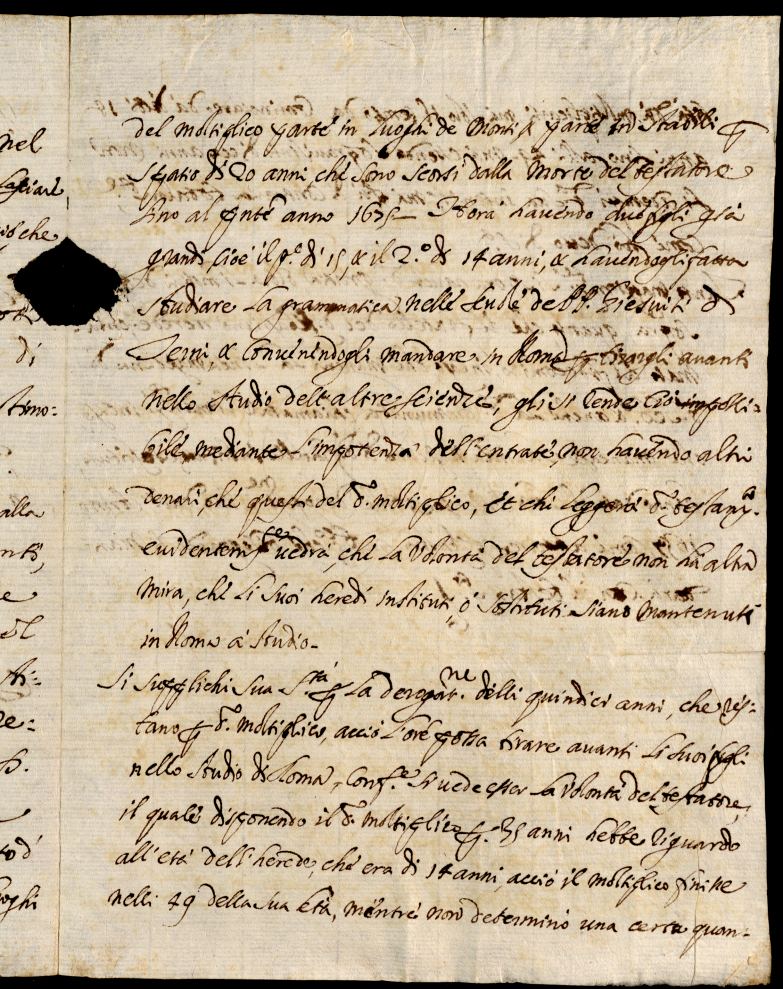 nel
lasciare
che
di
alla
nti,
e
el
to d
loghi
del moltiplico parte in luoghi de Monti, & parte in Stabili p
spatio di 20 anni, che sono scorsi dalla Morte del testatore
sino al pnte anno 1675 Hora havendo due figli già
grandi, cioè il p.º di 15, & il 2.º di 14 anni, & havendogli fatta
studiare la grammatica nelle scuole de PP. Giesuiti di
Terni, & convenendogli mandare in Roma p tirargli avanti
nello studio dell'altre scienze, gli si rende ciò impossi=
bile, mediante l'impotenza dell'entrate, non havendo altri
denari, che questi del d.º moltiplico, et chi leggerà d.º testam.to
evidentem.te vedrà, che la volontà del testatore non ha altra
mira, che li suoi heredi instituti, ò sostituti siano mantenuti
in Roma à studio.
Si supplichi Sua S.tà p la derogat.ne delli quindici anni, che res=
tano p d.º moltiplico, acciò l'Ore possa tirare avanti li suoi figli
nello studio di Roma, conf.e si vede esser la volontà del testatore,
il quale disponendo il d.º moltiplico p. 35 anni hebbe riguardo
all'età dell'herede, che era di 14 anni, acciò il moltiplico finisse
nelli 49 della sua età, mentre non determinò una certa quan=